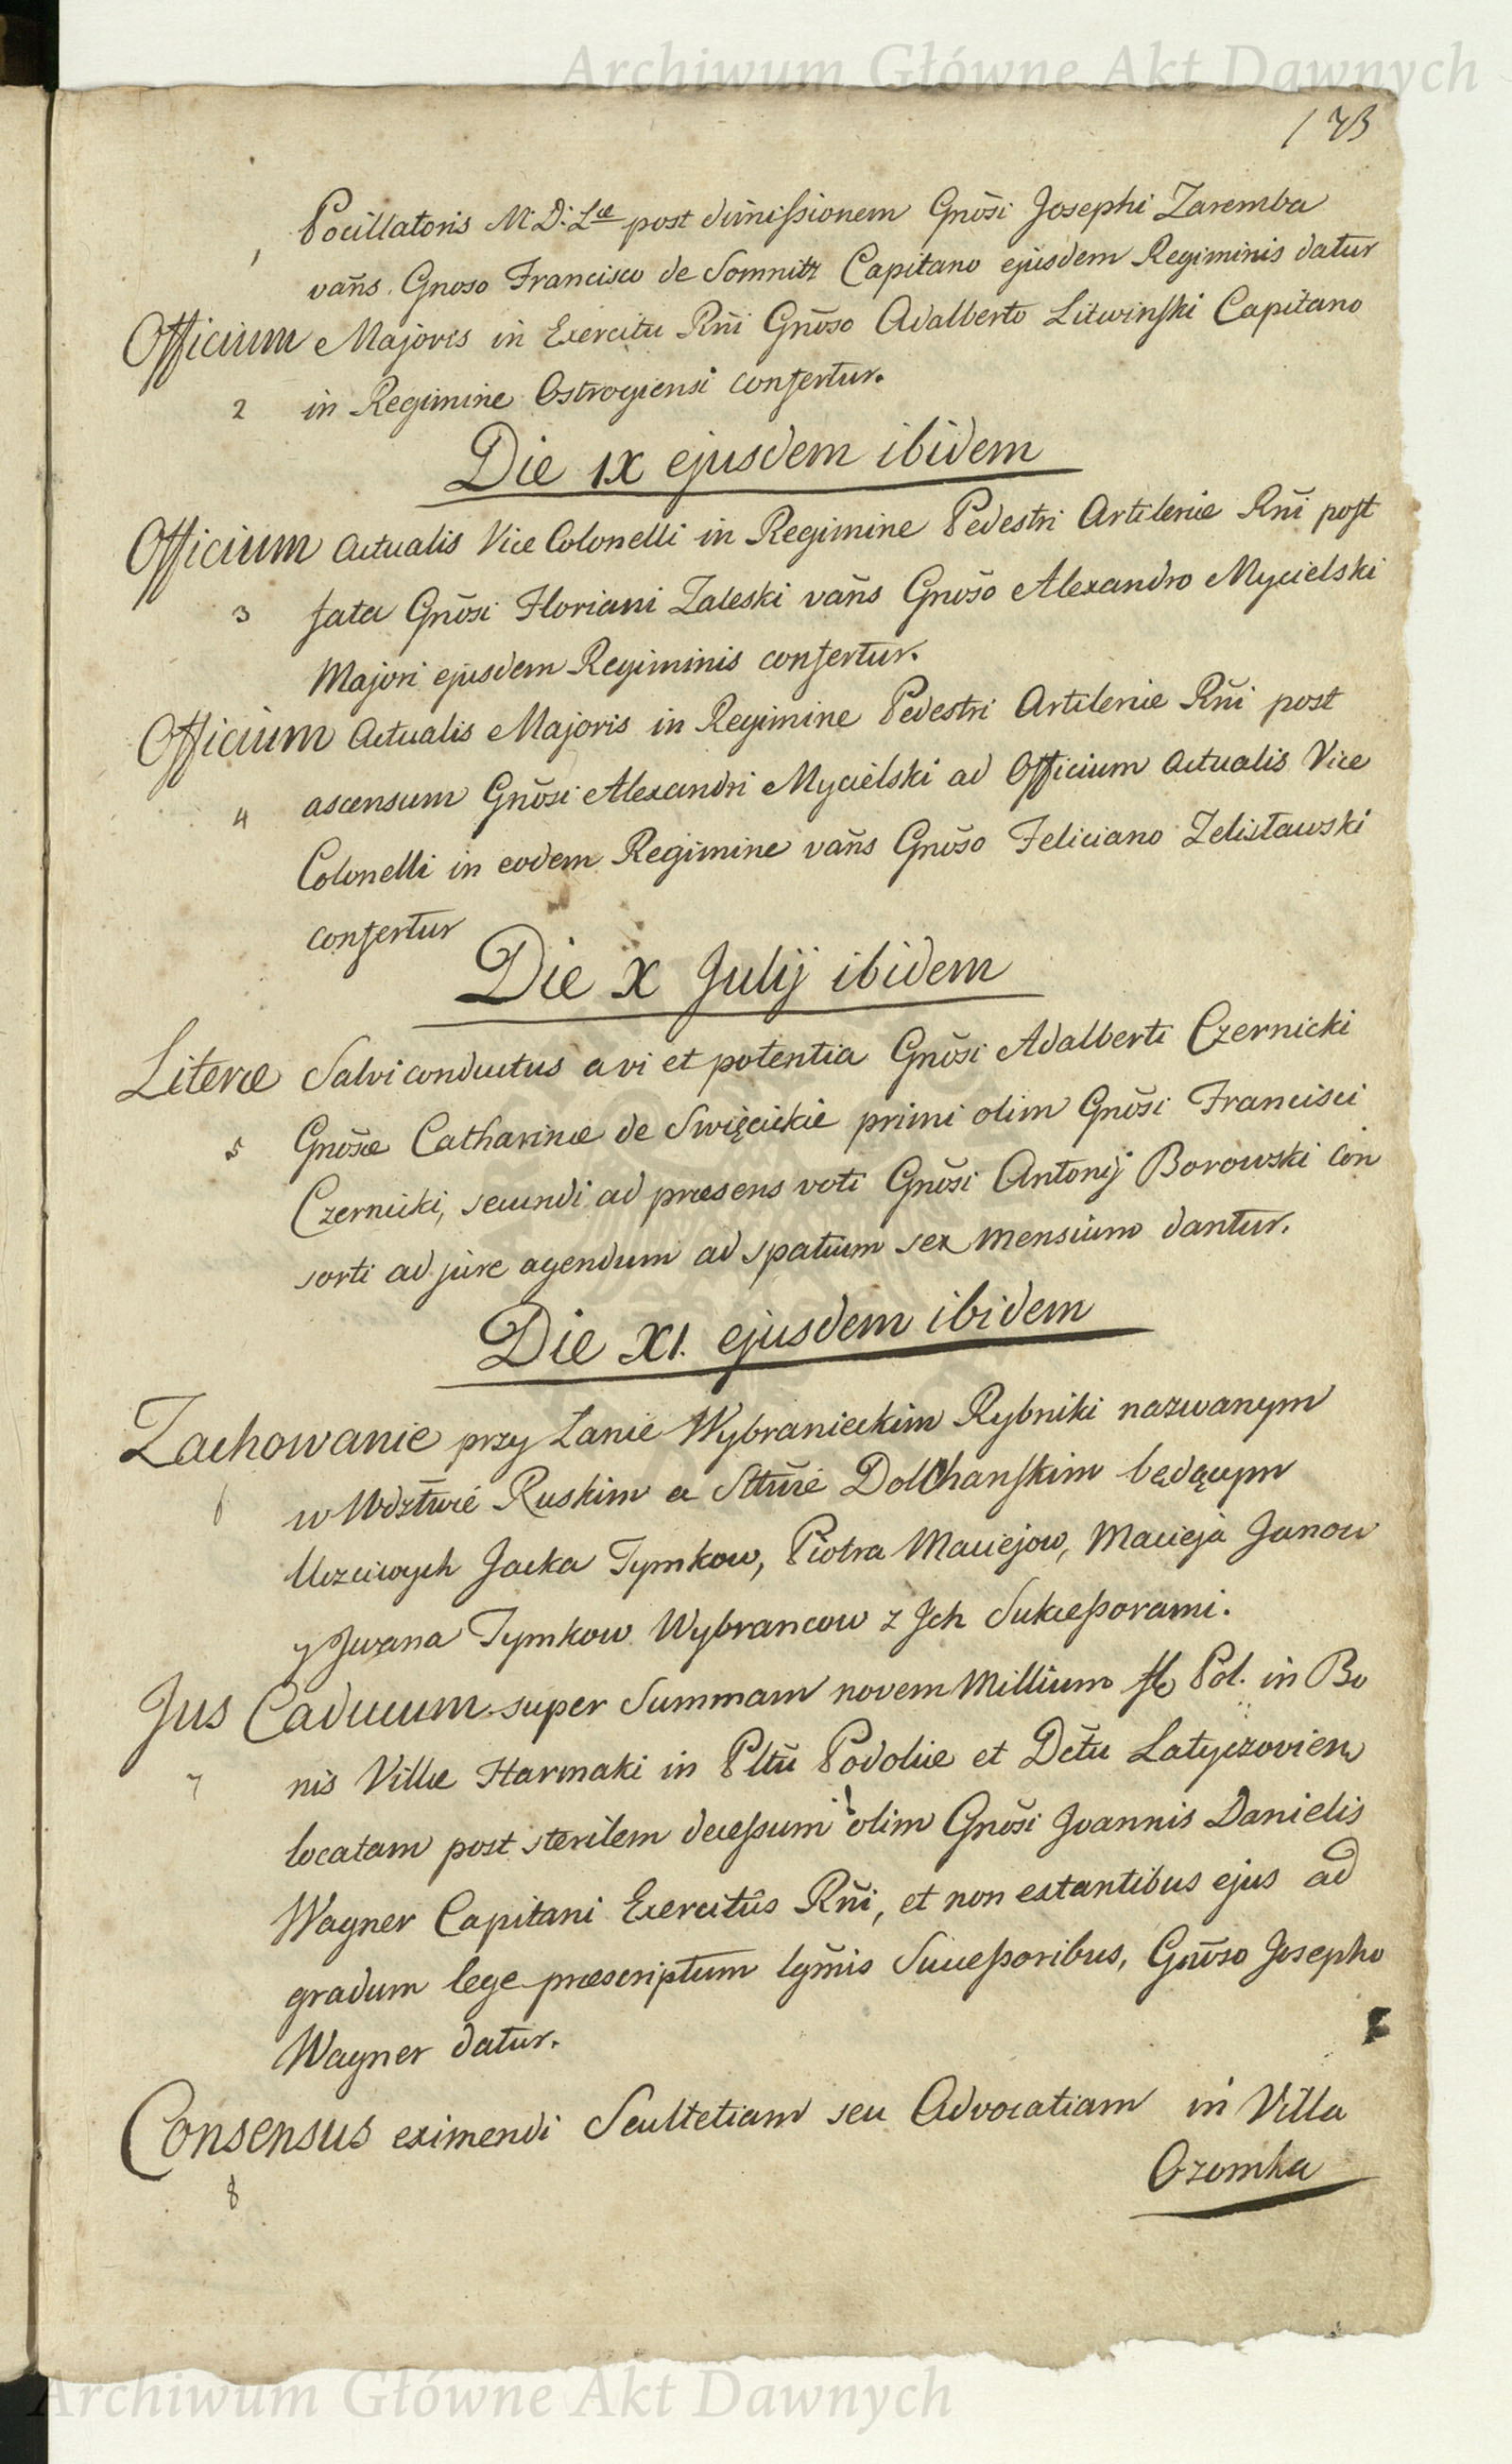 Archiwum Główne Akt Dawnych
173
Pocillatoris M. D. Læ post dimissionem Gnōsi Josephi Zaremba
1
vañs Gnoso Francisco de Somnitz Capitano ejusdem Regiminis datur
Officium Majoris in Exercitu Rñi Gnōso Adalberto Litwinski Capitano
2 in Regimine Ostrogiensi confertur.
Die IX ejusdem ibidem
Officium Actualis Vice Colonelli in Regimine Pedestri Artileriæ Rñi post
3 fata Gnōsi Floriani Zaleski vañs Gnōso Alexandro Mycielski
Majori ejusdem Regiminis confertur.
Officium Actualis Majoris in Regimine Pedestri Artileriæ Rñi post
4 ascensum Gnōsi Alexandri Mycielski ad Officium Actualis Vice
Colonelli in eodem Regimine vañs Gnōso Feliciano Zelisławski
confertur
Die X Julij ibidem
Literæ Salvi conductus a vi et potentia Gnōsi Adalberti Czernicki
5 Gnōsæ Catharinæ de Swięcickie primi olim Gnōsi Francisci
Czernicki, secundi ad præsens voti Gnōsi Antonij Borowski Con
sorti ad jure agendum ad spatium sex mensium dantur.
Die XI. ejusdem ibidem
Zachowanie przy Łanie Wybranieckim Rybniki nazwanym
6 w Wdztwie Ruskim a Sttwie Dolchanskim będącym
Uczciwych Jacka Tymkow, Piotra Maciejow, Macieja Janow
y Jwana Tymkow Wybrancow z Jch Sukcessorami.
Jus Caducum super Summam novem Millium fl Pol. in Bo
7 nis Villæ Harmaki in Pltū Podoliæ et Dctū Latyczovien
locatam post sterilem decessum olim Gnōsi Joannis Danielis
Wagner Capitani Exercitûs Rñi, et non extantibus ejus ad
gradum lege præscriptum lgmis Successoribus, Gnōso Josepho
Wagner datur.
Consensus eximendi Scultetiam seu Advocatiam in Villa
8
Ozomla
Archiwum Główne Akt Dawnych